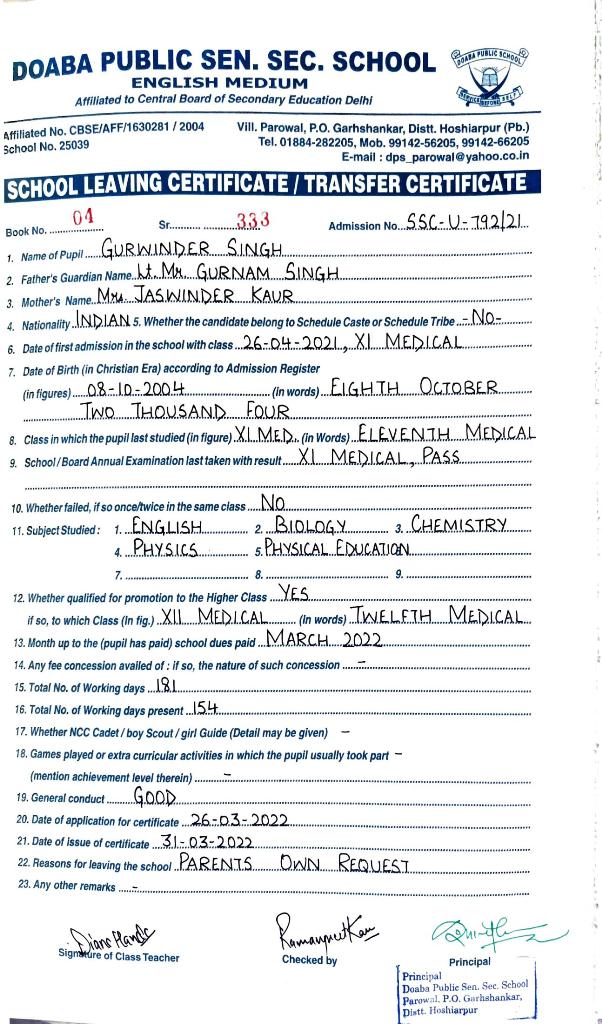 DOABA PUBLIC SEN. SEC. SCHOOL
DOABA PUBLIC SCHOOL
ENGLISH MEDIUM
SERVICE BEFORE SELF
Affiliated to Central Board of Secondary Education Delhi
Affiliated No. CBSE/AFF/1630281 / 2004
School No. 25039
Vill. Parowal, P.O. Garhshankar, Distt. Hoshiarpur (Pb.)
Tel. 01884-282205, Mob. 99142-56205, 99142-66205
E-mail : dps_parowal@yahoo.co.in
SCHOOL LEAVING CERTIFICATE / TRANSFER CERTIFICATE
Book No. 04 Sr. 333 Admission No. SSC-U-792/21
1. Name of Pupil GURWINDER SINGH
2. Father's Guardian Name Lt. Mr. GURNAM SINGH
3. Mother's Name Mrs. JASWINDER KAUR
4. Nationality INDIAN 5. Whether the candidate belong to Schedule Caste or Schedule Tribe -No-
6. Date of first admission in the school with class 26-04-2021, XI MEDICAL
7. Date of Birth (in Christian Era) according to Admission Register
(in figures) 08-10-2004 (in words) EIGHTH OCTOBER
TWO THOUSAND FOUR
8. Class in which the pupil last studied (in figure) XI MED. (in Words) ELEVENTH MEDICAL
9. School/Board Annual Examination last taken with result XI MEDICAL, PASS
10. Whether failed, if so once/twice in the same class NO
11. Subject Studied : 1. ENGLISH 2. BIOLOGY 3. CHEMISTRY
4. PHYSICS 5. PHYSICAL EDUCATION
7. 8. 9.
12. Whether qualified for promotion to the Higher Class YES
if so, to which Class (In fig.) XII MEDICAL (in words) TWELFTH MEDICAL
13. Month up to the (pupil has paid) school dues paid MARCH 2022
14. Any fee concession availed of : if so, the nature of such concession -
15. Total No. of Working days 181
16. Total No. of Working days present 154
17. Whether NCC Cadet / boy Scout / girl Guide (Detail may be given) -
18. Games played or extra curricular activities in which the pupil usually took part -
(mention achievement level therein) -
19. General conduct GOOD
20. Date of application for certificate 26-03-2022
21. Date of issue of certificate 31-03-2022
22. Reasons for leaving the school PARENTS OWN REQUEST
23. Any other remarks -
Ramanpreet Kaur
Signature of Class Teacher Checked by Principal
Principal
Doaba Public Sen. Sec. School
Parowal, P.O. Garhshankar,
Distt. Hoshiarpur